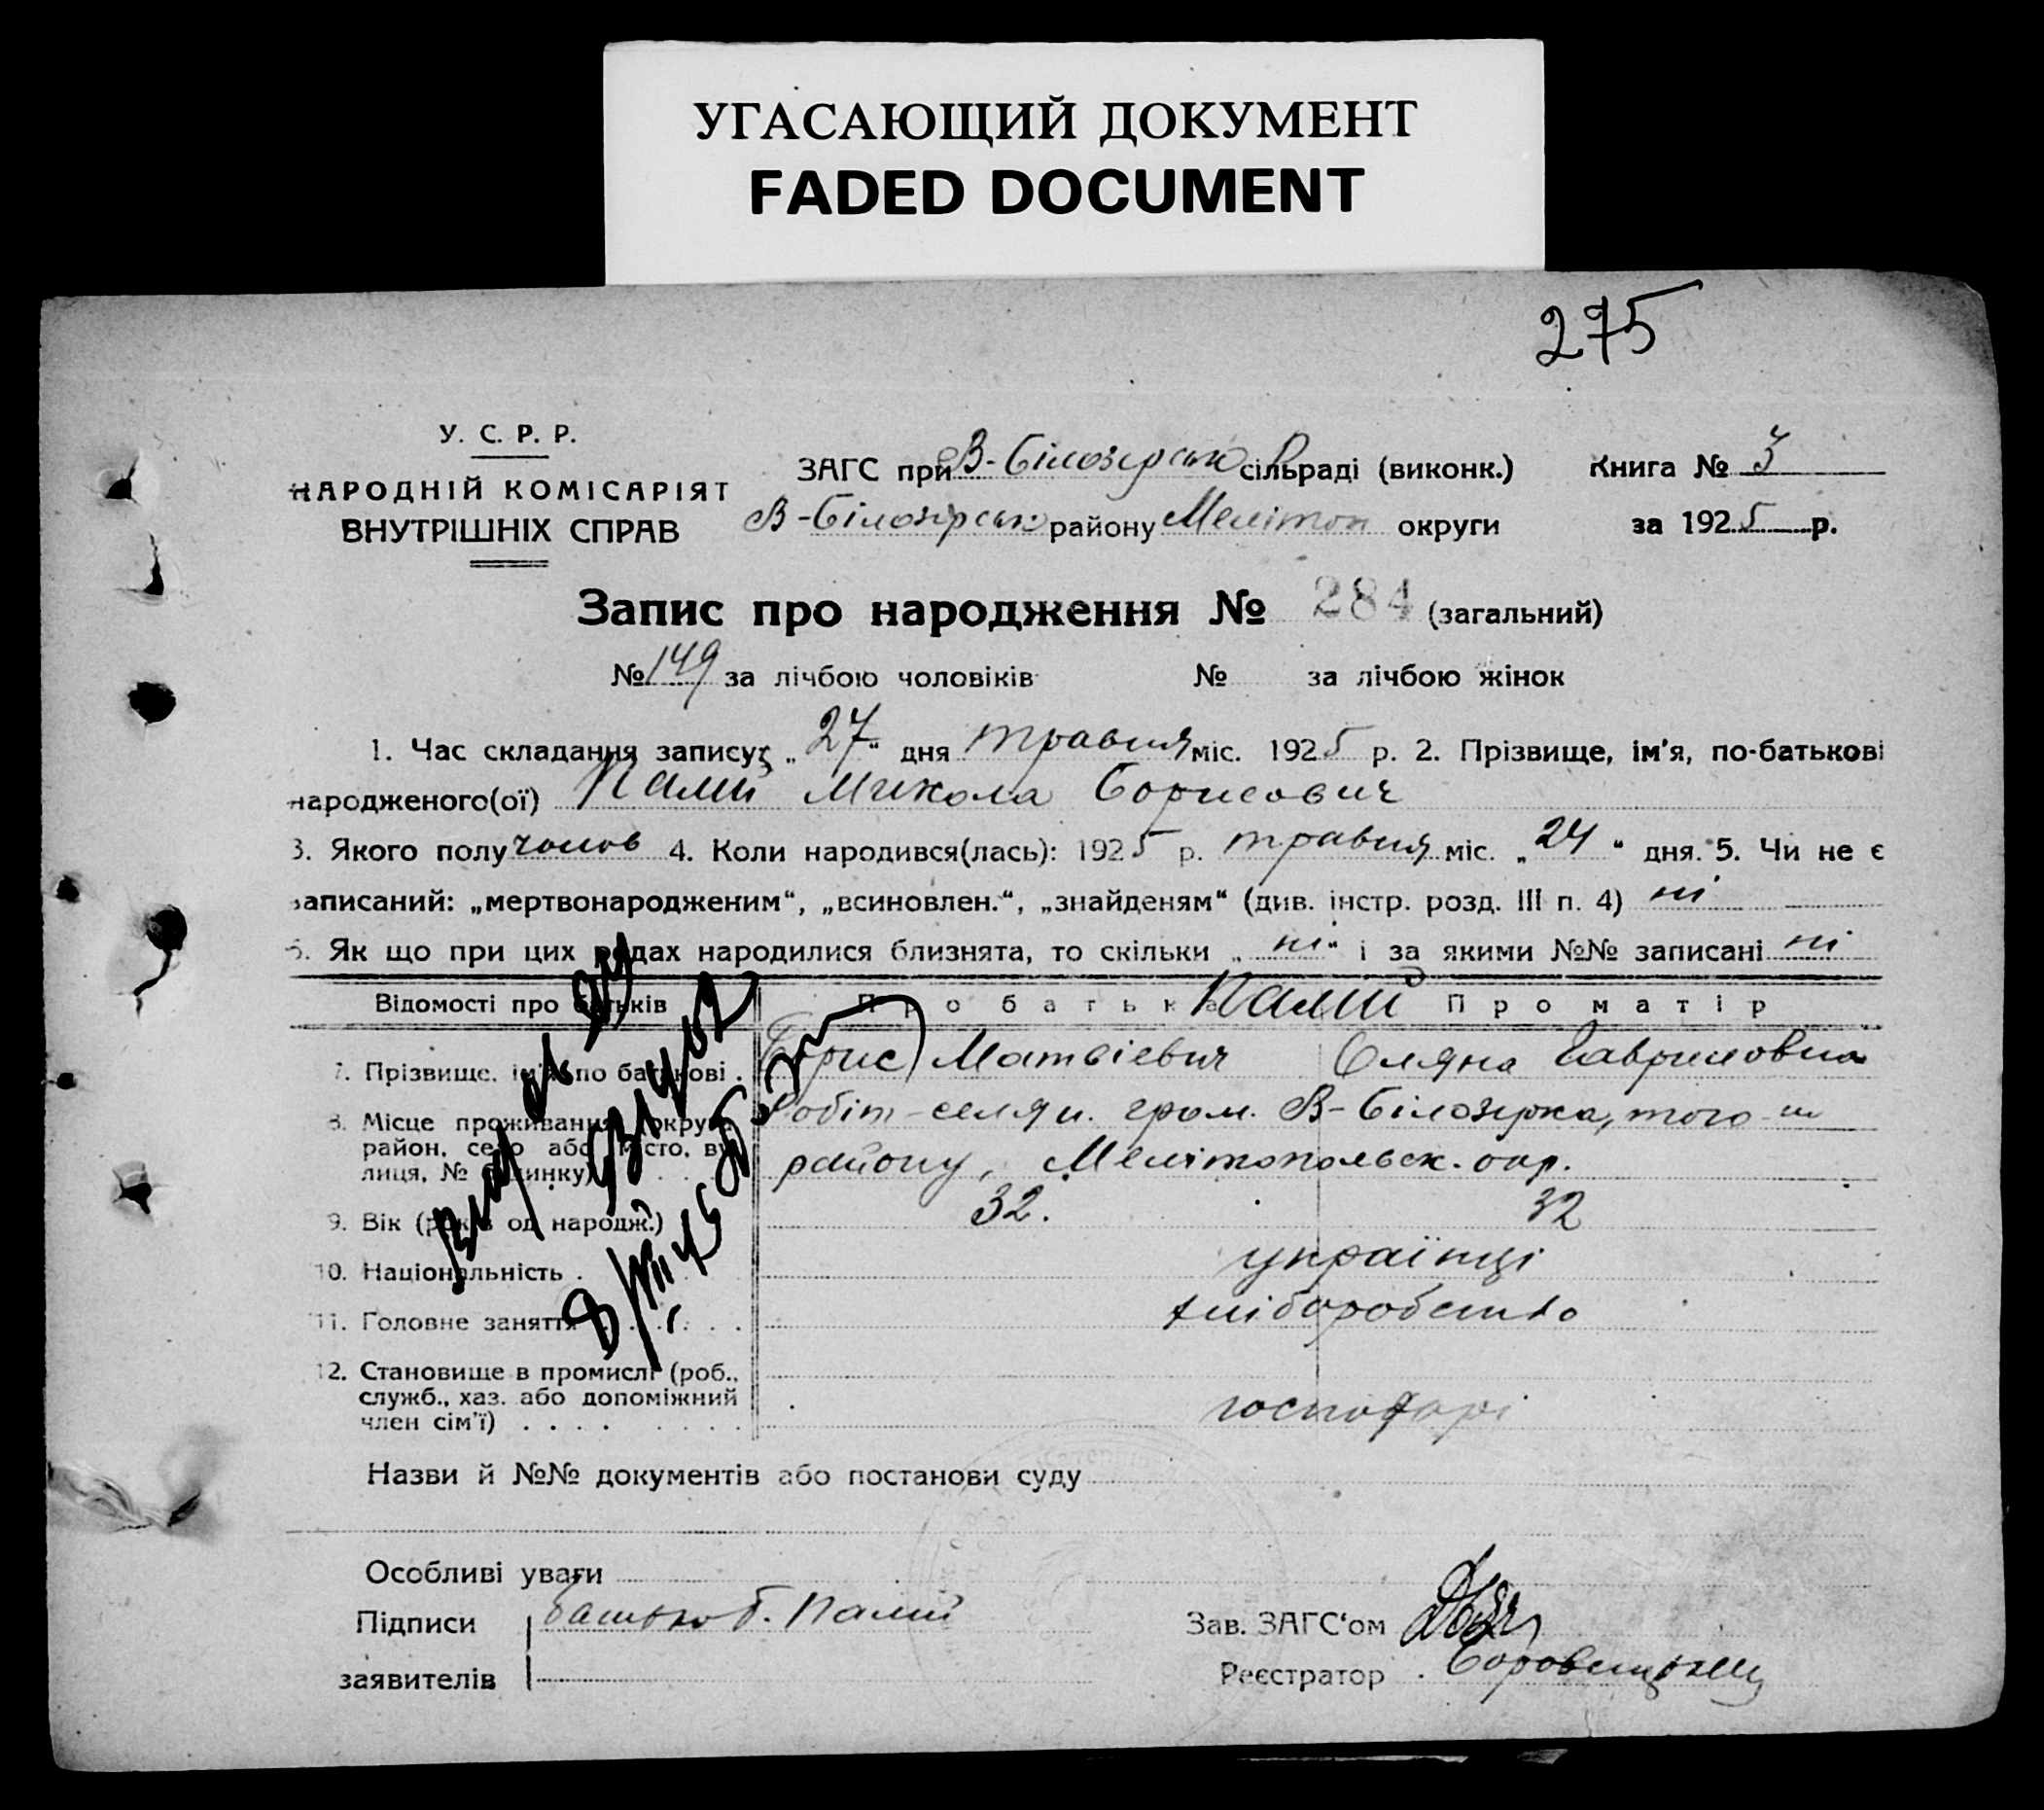 УГАСАЮЩИЙ ДОКУМЕНТ
FADED DOCUMENT
275
У. С. Р. Р.
НАРОДНІЙ КОМІСАРІЯТ
ВНУТРІШНІХ СПРАВ
ЗАГС при В-Білозірськ сільраді (виконк.) Книга № 3
В-Білозірськ району Мелітоп округи за 1925 р.
Запис про народження № 284 (загальний)
№ 149 за лічбою чоловіків № за лічбою жінок
1. Час складання запису: „27“ дня травня міс. 1925 р. 2. Прізвище, ім'я, по-батькові
народженого(ої) Палій Микола Борисович
3. Якого полу чолов 4. Коли народився(лась): 1925 р. травня міс. „24“ дня. 5. Чи не є
записаний: „мертвонародженим“, „всиновлен.“, „знайденям“ (див. інстр. розд. III п. 4) ні
6. Як що при цих родах народилися близнята, то скільки „ні“ і за якими №№ записані ні
Відомості про батьків Про батька Палій Про матір
7. Прізвище, ім'я, по батькові . Борис Матвієвич Оляна Гавриловна
8. Місце проживання (округа, район, село або місто, вулиця, № будинку) Робіт-селян. гром. В-Білозірка, того-ж
району, Мелітопольск. окр.
9. Вік (років од народж.) 32. 32
10. Національність . українці
11. Головне заняття . . . . хліборобство
12. Становище в промислі (роб.,
служб., хаз. або допоміжний
член сім'ї) . . . . господарі
8/VIII 45 г.
Назви й №№ документів або постанови суду
Особливі уваги
Підписи батько Б. Палій Зав. ЗАГС'ом
заявителів Реєстратор